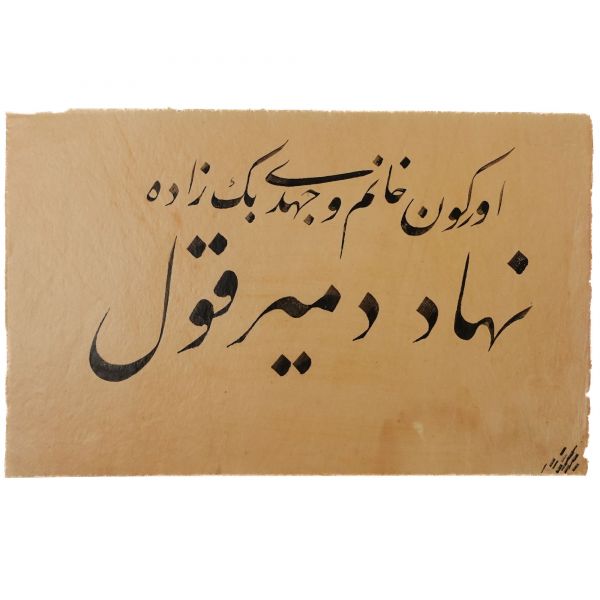 اوركون خانم و جهدی بك زاده
نهاد دميرقول